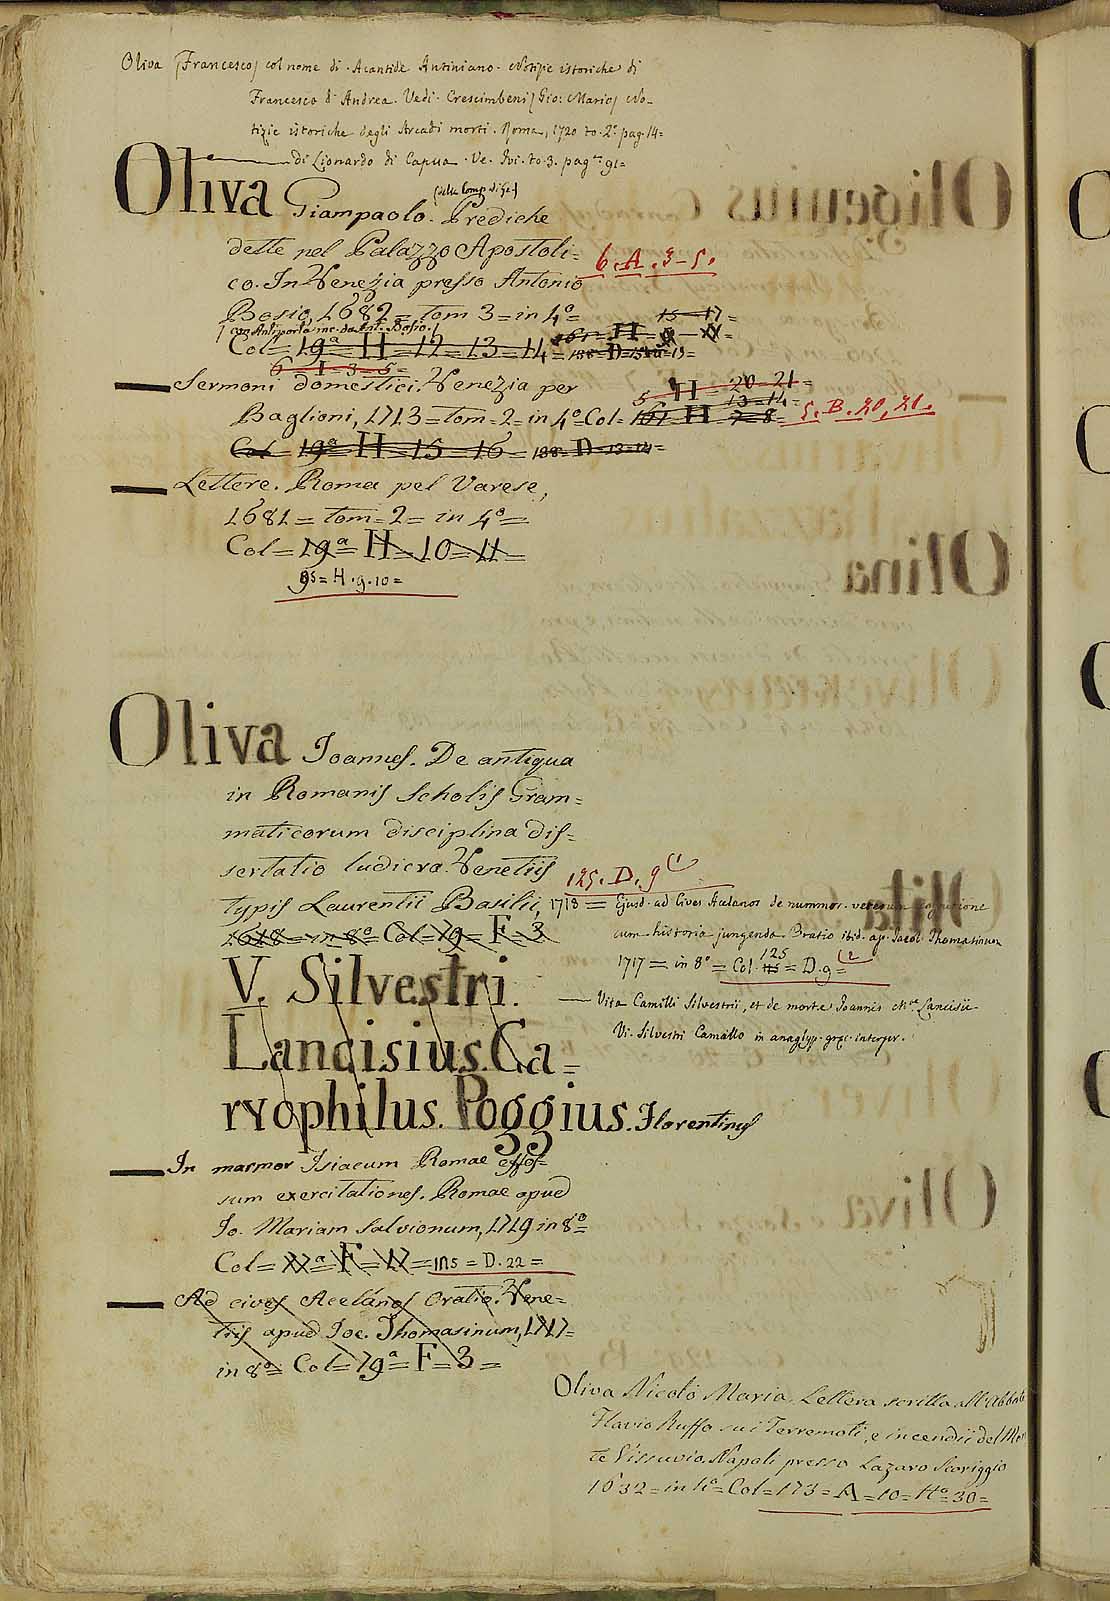 Oliva (Francesco) col nome di Acantide Antiniano. Notizie istoriche di
Francesco d'Andrea. Vedi Crescimbeni (Gio: Mario) No-
tizie istoriche degli Arcadi morti. Roma, 1720 to. 2º pag. 14=
di Lionardo di Capua. Ve. Ivi. to. 3. pag. 91=
Oliva Giampaolo. Prediche
dette nel Palazzo Apostoli=
co. In Venezia presso Antonio
6. A. 3-5.
Bosio, 1682= tom 3= in 4º
15 - 17=
(con Antiporta inc. da Bosio.)
Col= 19ª H= 12= 13= 14= 188= D=
6 - I - 3 - 5=
Sermoni domestici. Venezia per
5 H = 20-21=
13 - 14=
Baglioni, 1713= tom= 2= in 4º Col= 107 H 7=8= 5. B. 20, 21.
Col= 19ª= H= 15= 16= 188= D= 13=14=
Lettere. Roma pel Varese,
1681= tom= 2= in 4º=
Col= 19ª= H= 10= 11=
95= H. 9. 10=
Oliva Joannes. De antiqua
in Romanis scholis Gram=
maticorum disciplina dis=
sertatio ludicra. Venetiis
125. D. 9 (1
typis Laurentii Basilii, 1718= Ejusd. ad Cives Acelanos de nummor. veterum cognitione
1618= in 8º Col= 19= F= 3
cum historia jungenda Oratio ibid. ap. Jacob. Thomasinum
1717= in 8º= Col. 125= D. 9= (2
V. Silvestri.
Vita Camilli Silvestrii, et de morte Joannis M.ae Lancisii
Lancisius. Ca-
Vi. Silvestri Camillo in anaglyp. græc. interpr.
ryophilus. Poggius. Florentinus
In marmor Isiacum Romae effos-
sum exercitationes. Romae apud
Jo. Mariam Salvionum, 1719 in 8º=
Col= 22ª= F= 17= 115= D. 22=
Ad cives Acelános Oratio. Vene=
tiis apud Joc. Thomasinum, 1717=
in 8º= Col= 19ª= F= 3=
Oliva Nicolò Maria. Lettera scritta all'Abbate
Flavio Ruffo sui Terremoti, e incendii del Mon
te Vissuvio. Napoli presso Lazaro Scoriggio
1632= in 4º= Col= 173= A= 10= Hº= 30=